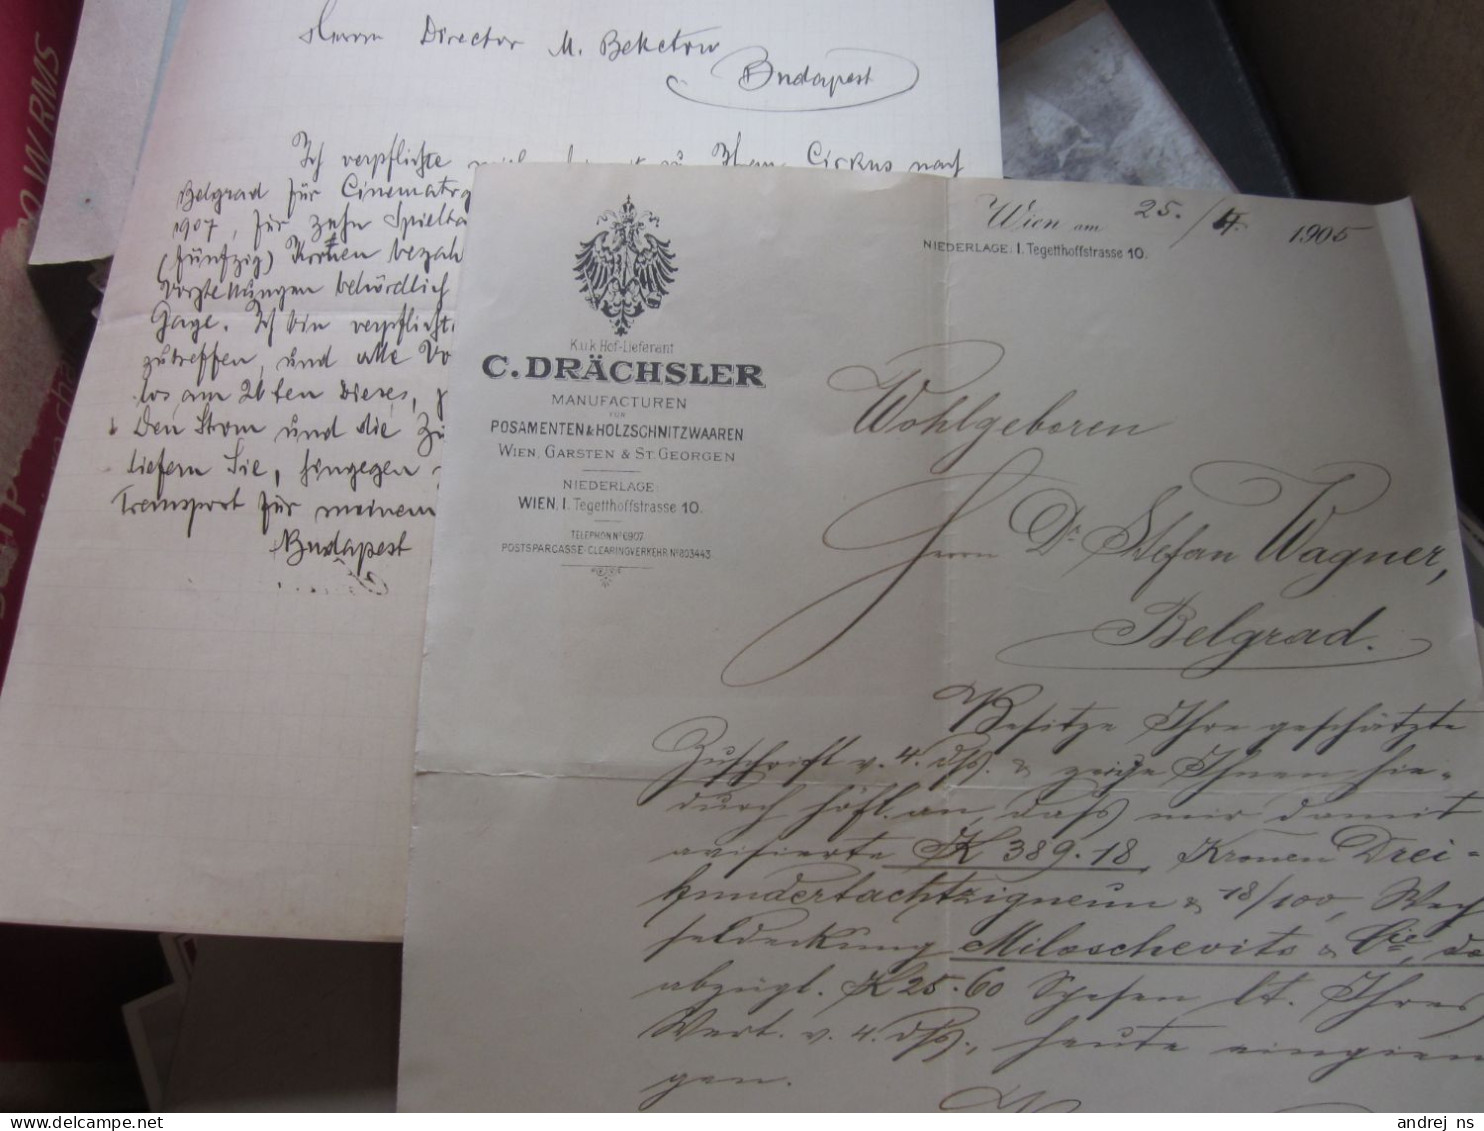 Herrn Director M. Beketow
Budapest
Ich verpflichte mich Cirkus nach
Belgrad für Cinematogr
1907, für zehn Spielta
(fünfzig) Kronen bezah
Vorstellungen behördlich
Gage. Ich bin verpflicht
zutreffen, und alle Vo
los am 26ten dieses,
Den Strom und die Zu
liefern Sie, hingegen
Transport für meinem
Budapest
Wien am 25./ 1905
NIEDERLAGE: I. Tegetthoffstrasse 10.
K.u.k. Hof-Lieferant
C. DRÄCHSLER
MANUFACTUREN
FÜR
POSAMENTEN & HOLZSCHNITZWAAREN
WIEN, GARSTEN & ST. GEORGEN
NIEDERLAGE:
WIEN, I. Tegetthoffstrasse 10.
TELEPHON No 6907.
POSTSPARCASSE-CLEARINGVERKEHR No 803443
Wohlgeboren
Herrn Dr Stefan Wagner,
Belgrad.
Besitze Ihre geschätzte
Zuschrift v. 4. dss. & zeige Ihnen hie-
durch höfl. an, dass mir damit
avisierte K 389.18, Kronen Drei-
hundertachtzigneun & 18/100,
Miloschevits & Cie,
abzügl. K 25.60 Spesen lt. Ihres
Wert. v. 4. dss., heute eingien
gen.
WRMS
andrej ns